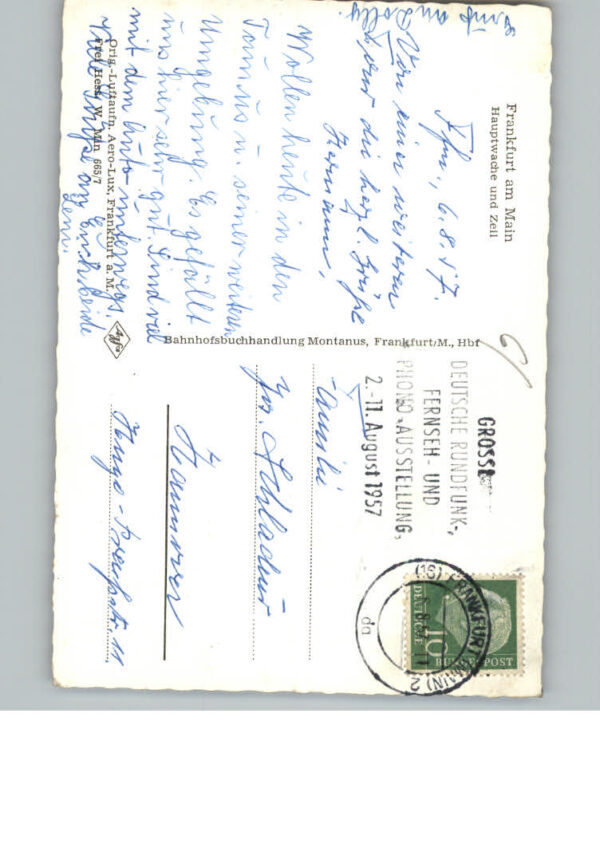 Frankfurt am Main
Hauptwache und Zeil
Ffm., 6.8.57.
Von einer weiteren
die herzl. Grüße
Hermann,
Wollen heute in den
Taunus u. seiner weiteren
Umgebung. Es gefällt
uns hier sehr gut. Sind viel
mit dem Auto unterwegs
Viele Grüße an Euch beide
Orig.-Luftaufn. Aero-Lux, Frankfurt a. M.
Frei Hess. W. Min 665/7
Bahnhofsbuchhandlung Montanus, Frankfurt/M., Hbf
GROSSE
DEUTSCHE RUNDFUNK-,
FERNSEH- UND
PHONO-AUSSTELLUNG,
2.-11. August 1957
(16) FRANKFURT (MAIN) 2
da
10
DEUTSCHE
BUNDESPOST
Familie
Hannover
11